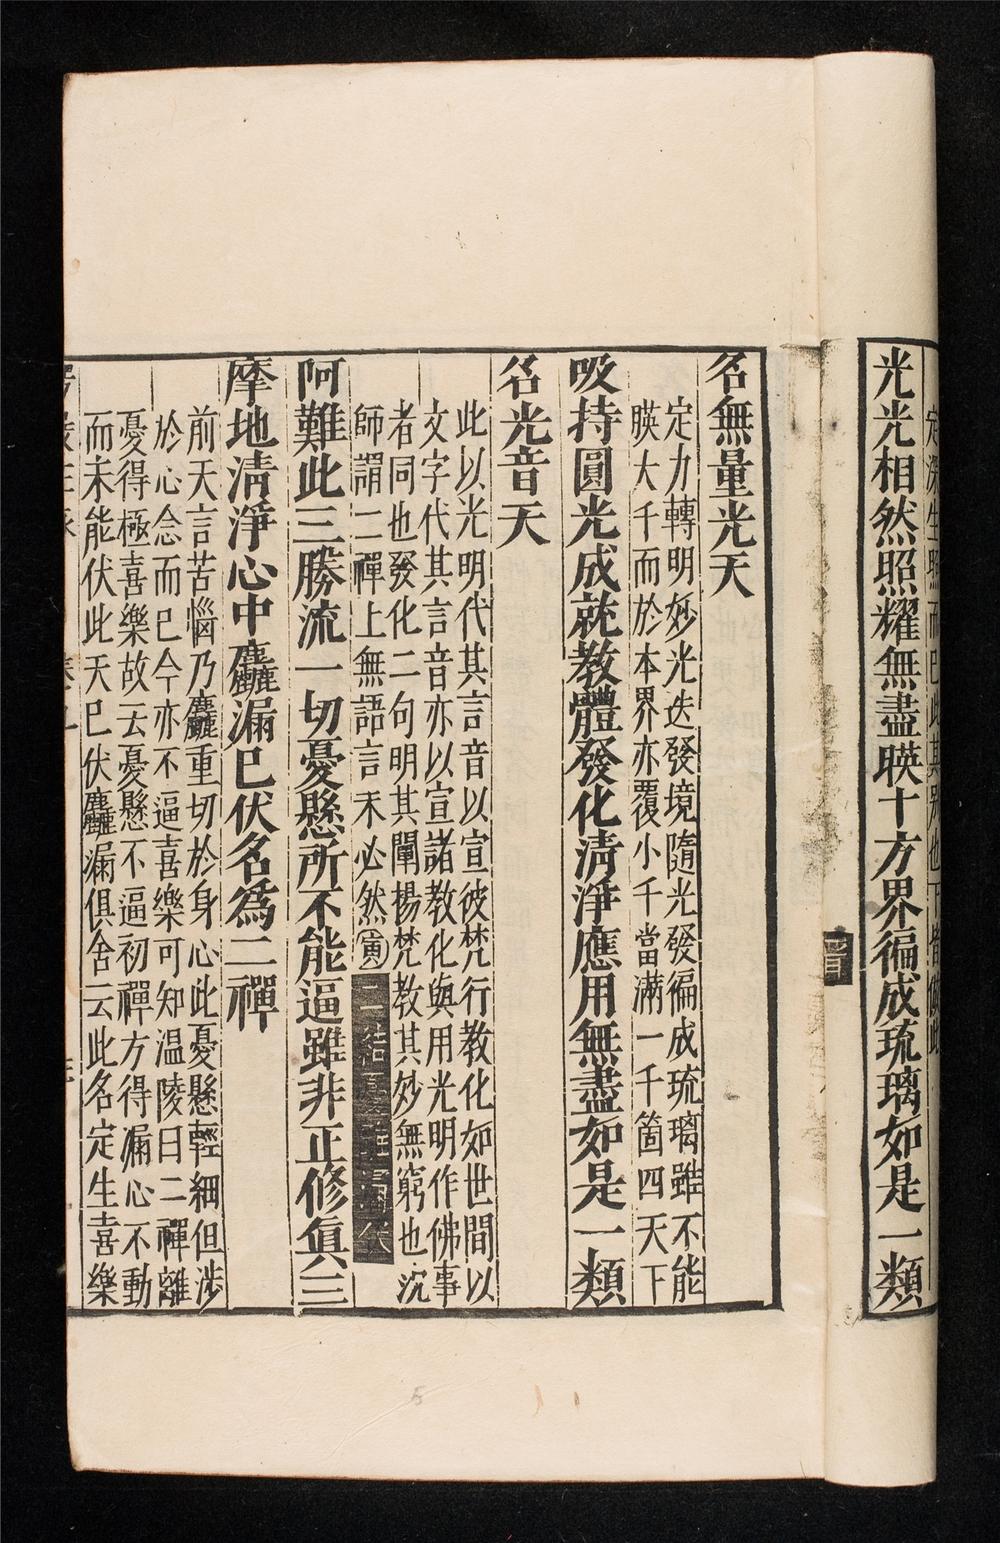 定深生照而已此其別也下皆倣此
光光相然照耀無盡暎十方界徧成琉璃如是一類
名無量光天
定力轉明妙光迭發境隨光發徧成琉璃雖不能
暎大千而於本界亦覆小千當滿一千箇四天下
吸持圓光成就教體發化清淨應用無盡如是一類
名光音天
此以光明代其言音以宣彼梵行教化如世間以
文字代其言音亦以宣諸教化與用光明作佛事
者同也發化二句明其闡揚梵教其妙無窮也沉
師謂二禪上無語言未必然㊞寅二結憂懸麤漏伏
阿難此三勝流一切憂懸所不能逼雖非正修眞三
摩地清淨心中麤漏已伏名爲二禪
前天言苦惱乃麤重切於身心此憂懸輕細但涉
於心念而已今亦不逼喜樂可知温陵曰二禪離
憂得極喜樂故云憂懸不逼初禪方得漏心不動
而未能伏此天已伏麤漏俱舍云此名定生喜樂